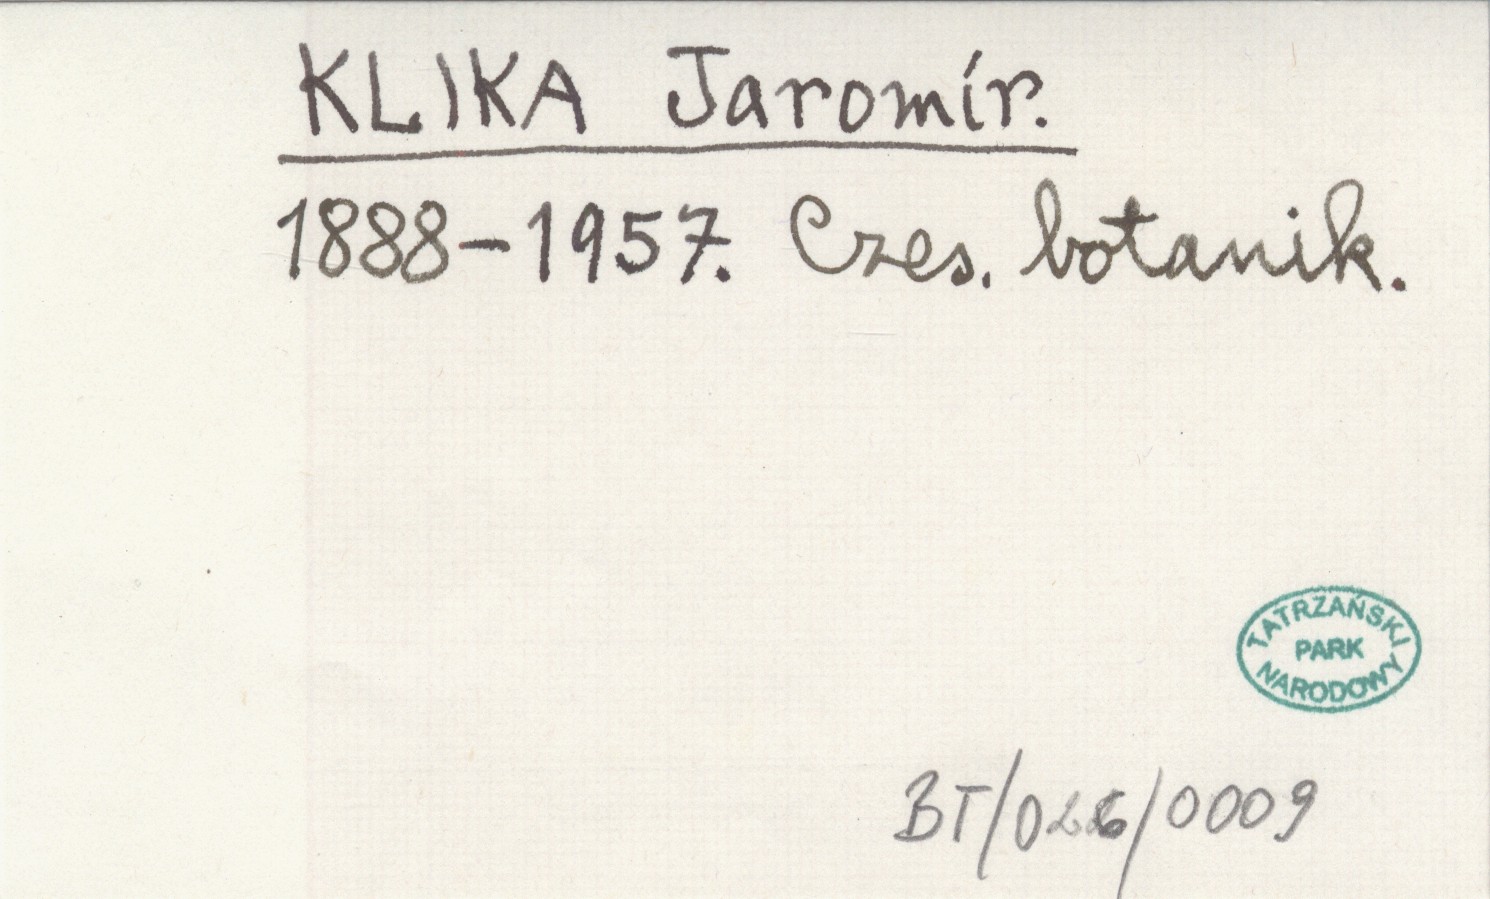 KLIKA Jaromír.
1888-1957. Czes. botanik.
TATRZAŃSKI
PARK
NARODOWY
BT/026/0009